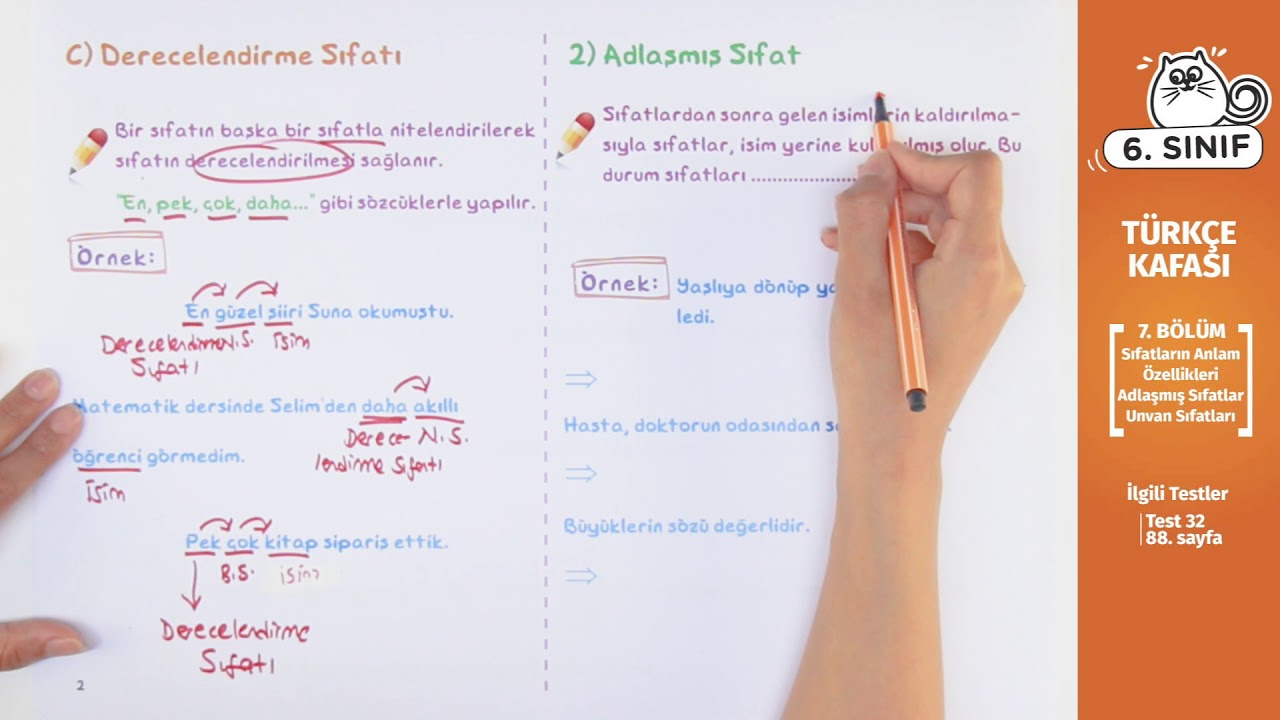 C) Derecelendirme Sıfatı
Bir sıfatın başka bir sıfatla nitelendirilerek
sıfatın derecelendirilmesi sağlanır.
"En, pek, çok, daha..." gibi sözcüklerle yapılır.
Örnek:
En güzel şiiri Suna okumuştu.
Derecelendirme N.S. isim
Sıfatı
Matematik dersinde Selim'den daha akıllı
Derece- N.S.
öğrenci görmedim.
lendirme Sıfatı
isim
Pek çok kitap sipariş ettik.
B.S. isim
Derecelendirme
Sıfatı
2
2) Adlaşmış Sıfat
Sıfatlardan sonra gelen isimlerin kaldırılma-
sıyla sıfatlar, isim yerine kullanılmış olur. Bu
durum sıfatları
Örnek:
Yaşlıya dönüp
ledi.
⇒
Hasta, doktorun odasından
⇒
Büyüklerin sözü değerlidir.
⇒
6. SINIF
TÜRKÇE
KAFASI
7. BÖLÜM
Sıfatların Anlam
Özellikleri
Adlaşmış Sıfatlar
Unvan Sıfatları
İlgili Testler
Test 32
88. sayfa